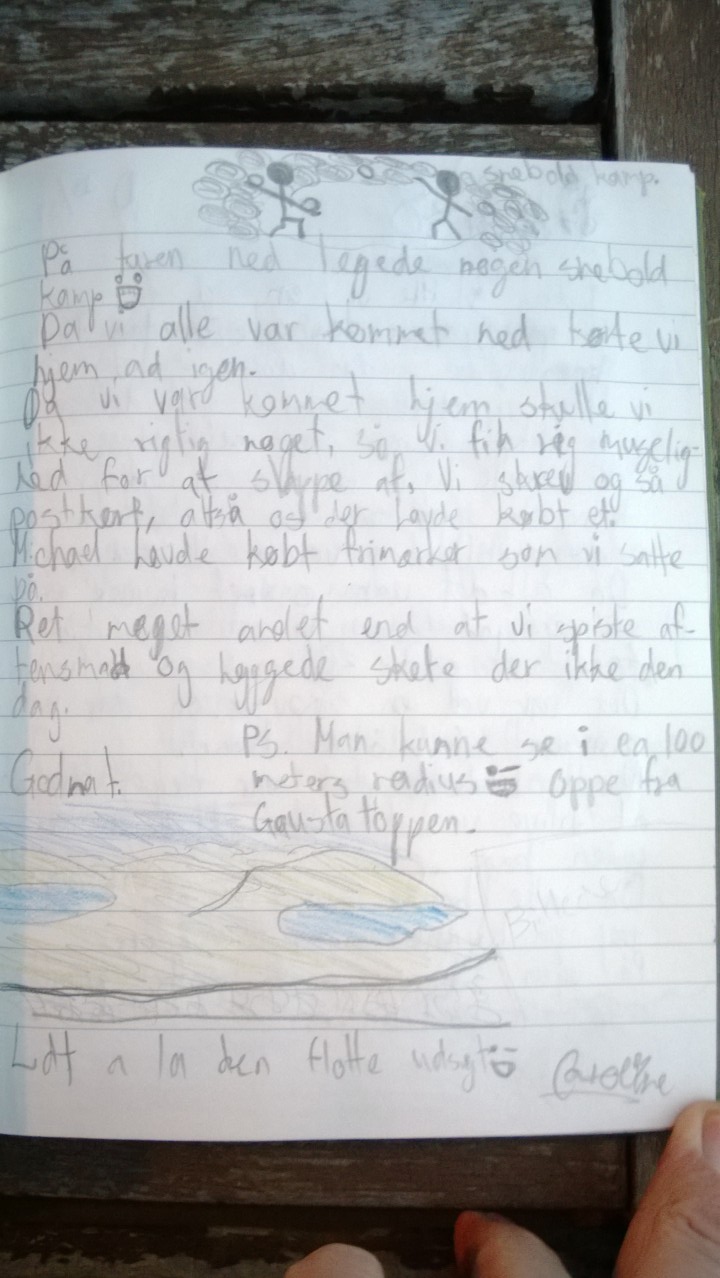 snebold kamp.
På turen ned legede nogen snebold
kamp
Da vi alle var kommet ned kørte vi
hjem ad igen.
Da vi var kommet hjem skulle vi
ikke rigtig noget, så vi fik rig muselig-
hed for at slappe af. Vi skrev og så
postkort, altså os der havde købt et.
Michael havde købt frimærker som vi satte
på.
Ret meget andet end at vi spiste af-
tensmad og hyggede skete der ikke den
dag.
PS. Man kunne se i ca 100
Godnat. meters radius oppe fra
Gausta toppen.
Lidt a la den flotte udsgt Caroline